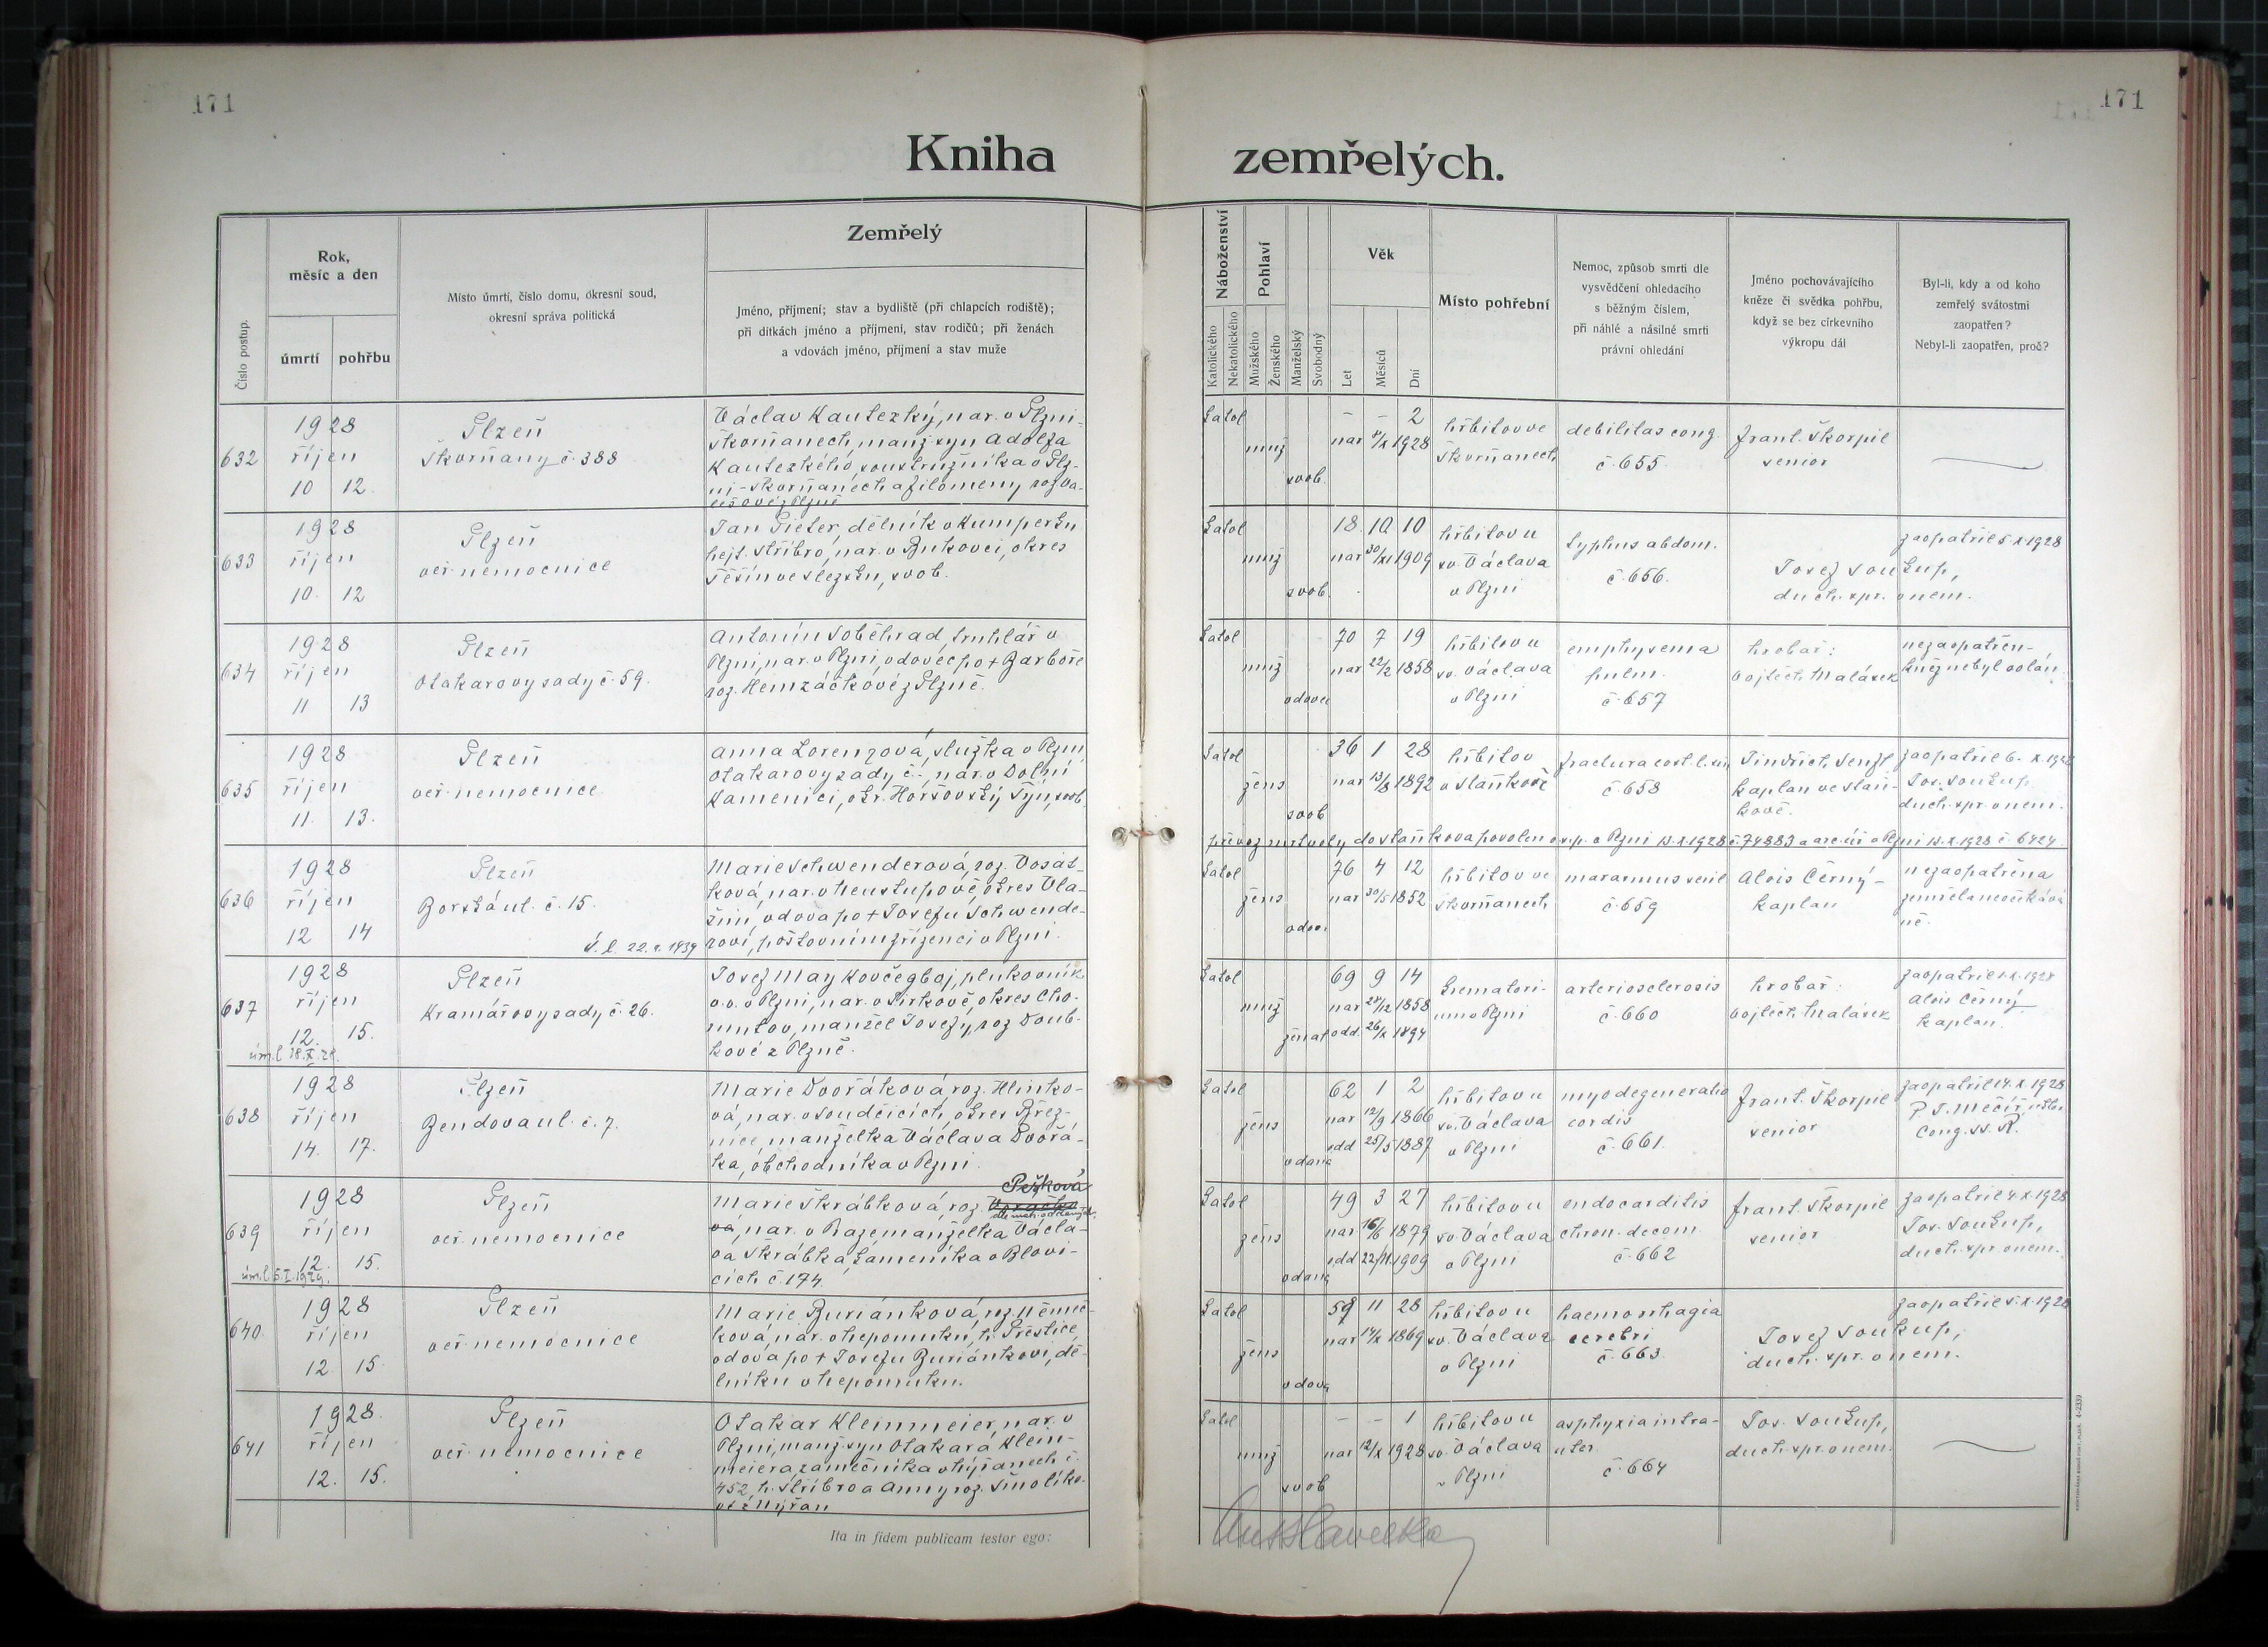 171
171
Kniha
zemřelých.
Číslo postup.
Rok,
měsíc a den
úmrtí
pohřbu
Místo úmrtí, číslo domu, okresní soud,
okresní správa politická
Zemřelý
Jméno, příjmení; stav a bydliště (při chlapcích rodiště);
při dítkách jméno a příjmení, stav rodičů; při ženách
a vdovách jméno, přijmení a stav muže
Náboženství
Katolického
Nekatolického
Pohlaví
Mužského
Ženského
Manželský
Svobodný
Věk
Let
Měsíců
Dní
Místo pohřební
Nemoc, způsob smrti dle
vysvědčení ohledacího
s běžným číslem,
při náhlé a násilné smrti
právní ohledání
Jméno pochovávajícího
kněze či svědka pohřbu,
když se bez církevního
výkropu dál
Byl-li, kdy a od koho
zemřelý svátostmi
zaopatřen?
Nebyl-li zaopatřen, proč?
632
1928
říjen
10 12.
Plzeň
Škorňany č. 388
Václav Kautezký, nar. v Plzni-
Škorňanech, manž. syn Adolfa
Kautezkého, soustružníka v Plz-
ni-Škorňanech a Filomeny roz. Va-
z Plzně
katol
muž
svob.
– – 2
nar 8/X 1928
hřbitov ve
Škorňanech
debilitas cong.
č. 655.
Frant. Škorpil
senior
633
1928
říjen
10. 12
Plzeň
veř. nemocnice
Jan Pieter, dělník v Kumperku
hejt. Stříbro, nar. v Bukovci, okres
Těšín ve Slezsku, svob.
katol
muž
svob.
18. 10 10
nar 30/XI 1909
hřbitov u
sv. Václava
v Plzni
typhus abdom.
č. 656.
Josef Soukup,
duch. spr. v nem.
zaopatřil 5. X. 1928
634
1928
říjen
11 13
Plzeň
Otakarovy sady č. 59.
Antonín Soběhrad, truhlář v
Plzni, nar. v Plzni, vdovec po + Barboře
roz. Hemzáčkové z Plzně.
katol
muž
vdovec
70 7 19
nar 22/2 1858
hřbitov u
sv. Václava
v Plzni
emphysema
pulm.
č. 657
hrobař:
Vojtěch Malásek
nezaopatřen-
kněz nebyl volán.
635
1928
říjen
11. 13.
Plzeň
veř. nemocnice
Anna Lorenzová, služka v Plzni,
Otakarovy sady č.-, nar. v Dolní
Kamenici, okr. Horšovský Týn, svob.
katol
žens
svob
36 1 28
nar 13/8 1892
hřbitov
v Staňkově
fractura cost. l. sin
č. 658
Jindřich Senft
kaplan ve Staň-
kově.
zaopatřil 6. X. 1928
Jos. Soukup
duch. spr. v nem.
převoz mrtvoly do Staňkova povolen o.s.p. v Plzni 13. X. 1928 č. 74883 a arc. úř. v Plzni 13. X. 1928 č. 6424.
636
1928
říjen
12 14
Plzeň
Borská ul. č. 15.
Ú. l. 22. 2. 1939
Marie Schwenderová, roz. Vosát-
ková, nar. v Neustupově, okres Vla-
šim, vdova po + Josefu Schwende-
rovi, poštovním zřízenci v Plzni.
katol
žens
vdov.
76 4 12
nar 30/5 1852
hřbitov ve
Škorňanech
marasmus senil
č. 659
Alois Černý-
kaplan
nezaopatřena
zemřela neočekává
ně.
637
1928
říjen
12. 15.
úm. l 18. X. 28.
Plzeň
Kramářovy sady č. 26.
Josef May Kovčegboj, plukovník
v. v. v Plzni, nar. v Jirkově, okres Cho-
mutov, manžel Josefy, roz. Doub-
kové z Plzně.
katol
muž
ženat
69 9 14
nar 28/12 1858
odd. 26/X 1894
krematori-
um v Plzni
arteriosclerosis
č. 660
hrobař:
Vojtěch Malásek
zaopatřil 1. X. 1928
Alois Černý
kaplan.
638
1928
říjen
14. 17.
Plzeň
Bendova ul. č. 7.
Marie Dvořáková, roz. Hlinko-
vá, nar. v Soudčicích, okres Břez-
nice, manželka Václava Dvořá-
ka, obchodníka v Plzni.
katol
žens
vdaná
62 1 2
nar 12/9 1866
odd 25/5 1887
hřbitov u
sv. Václava
v Plzni
myodegeneratio
cordis
č. 661.
Frant. Škorpil
senior
zaopatřil 14. X. 1928
P. J. Mečíř,
Cong. SS. R.
639
1928
říjen
12. 15.
úm. l 5. I. 1929.
Plzeň
veř. nemocnice
Pešková
Marie Škrábková, roz.
vá, nar. v Praze manželka Václa-
va Škrábka, kameníka v Blovi-
cích č. 174.
katol
žens
vdaná
49 3 27
nar 16/6 1879
odd 22/11 1909
hřbitov u
sv. Václava
v Plzni
endocarditis
chron. decom.
č. 662
Frant. Škorpil
senior
zaopatřil 4. X. 1928
Jos. Soukup,
duch. spr. v nem.
640
1928
říjen
12. 15
Plzeň
veř. nemocnice
Marie Buriánková, roz. Němeč-
ková, nar. v Nepomuku, h. Přeštice,
vdova po + Josefu Buriánkovi, dě-
lníku v Nepomuku.
katol
žens
vdova
58 11 28
nar 14/X 1869
hřbitov u
sv. Václava
v Plzni
haemorrhagia
cerebri
č. 663.
Josef Soukup,
duch. spr. v nem.
zaopatřil 5. X. 1928
641
1928.
říjen
12. 15.
Plzeň
veř. nemocnice
Otakar Kleinmeier, nar. v
Plzni, manž. syn Otakara Klein-
meiera zámečníka v Nýřanech č.
452, h. Stříbro a Anny roz. Smolíko-
vé z Nýřan
katol
muž
svob
– – 1
nar 12/X 1928
hřbitov u
sv. Václava
v Plzni
asphyxia intra-
uter.
č. 664
Jos. Soukup,
duch. spr. v nem.
Ita in fidem publicam testor ego: